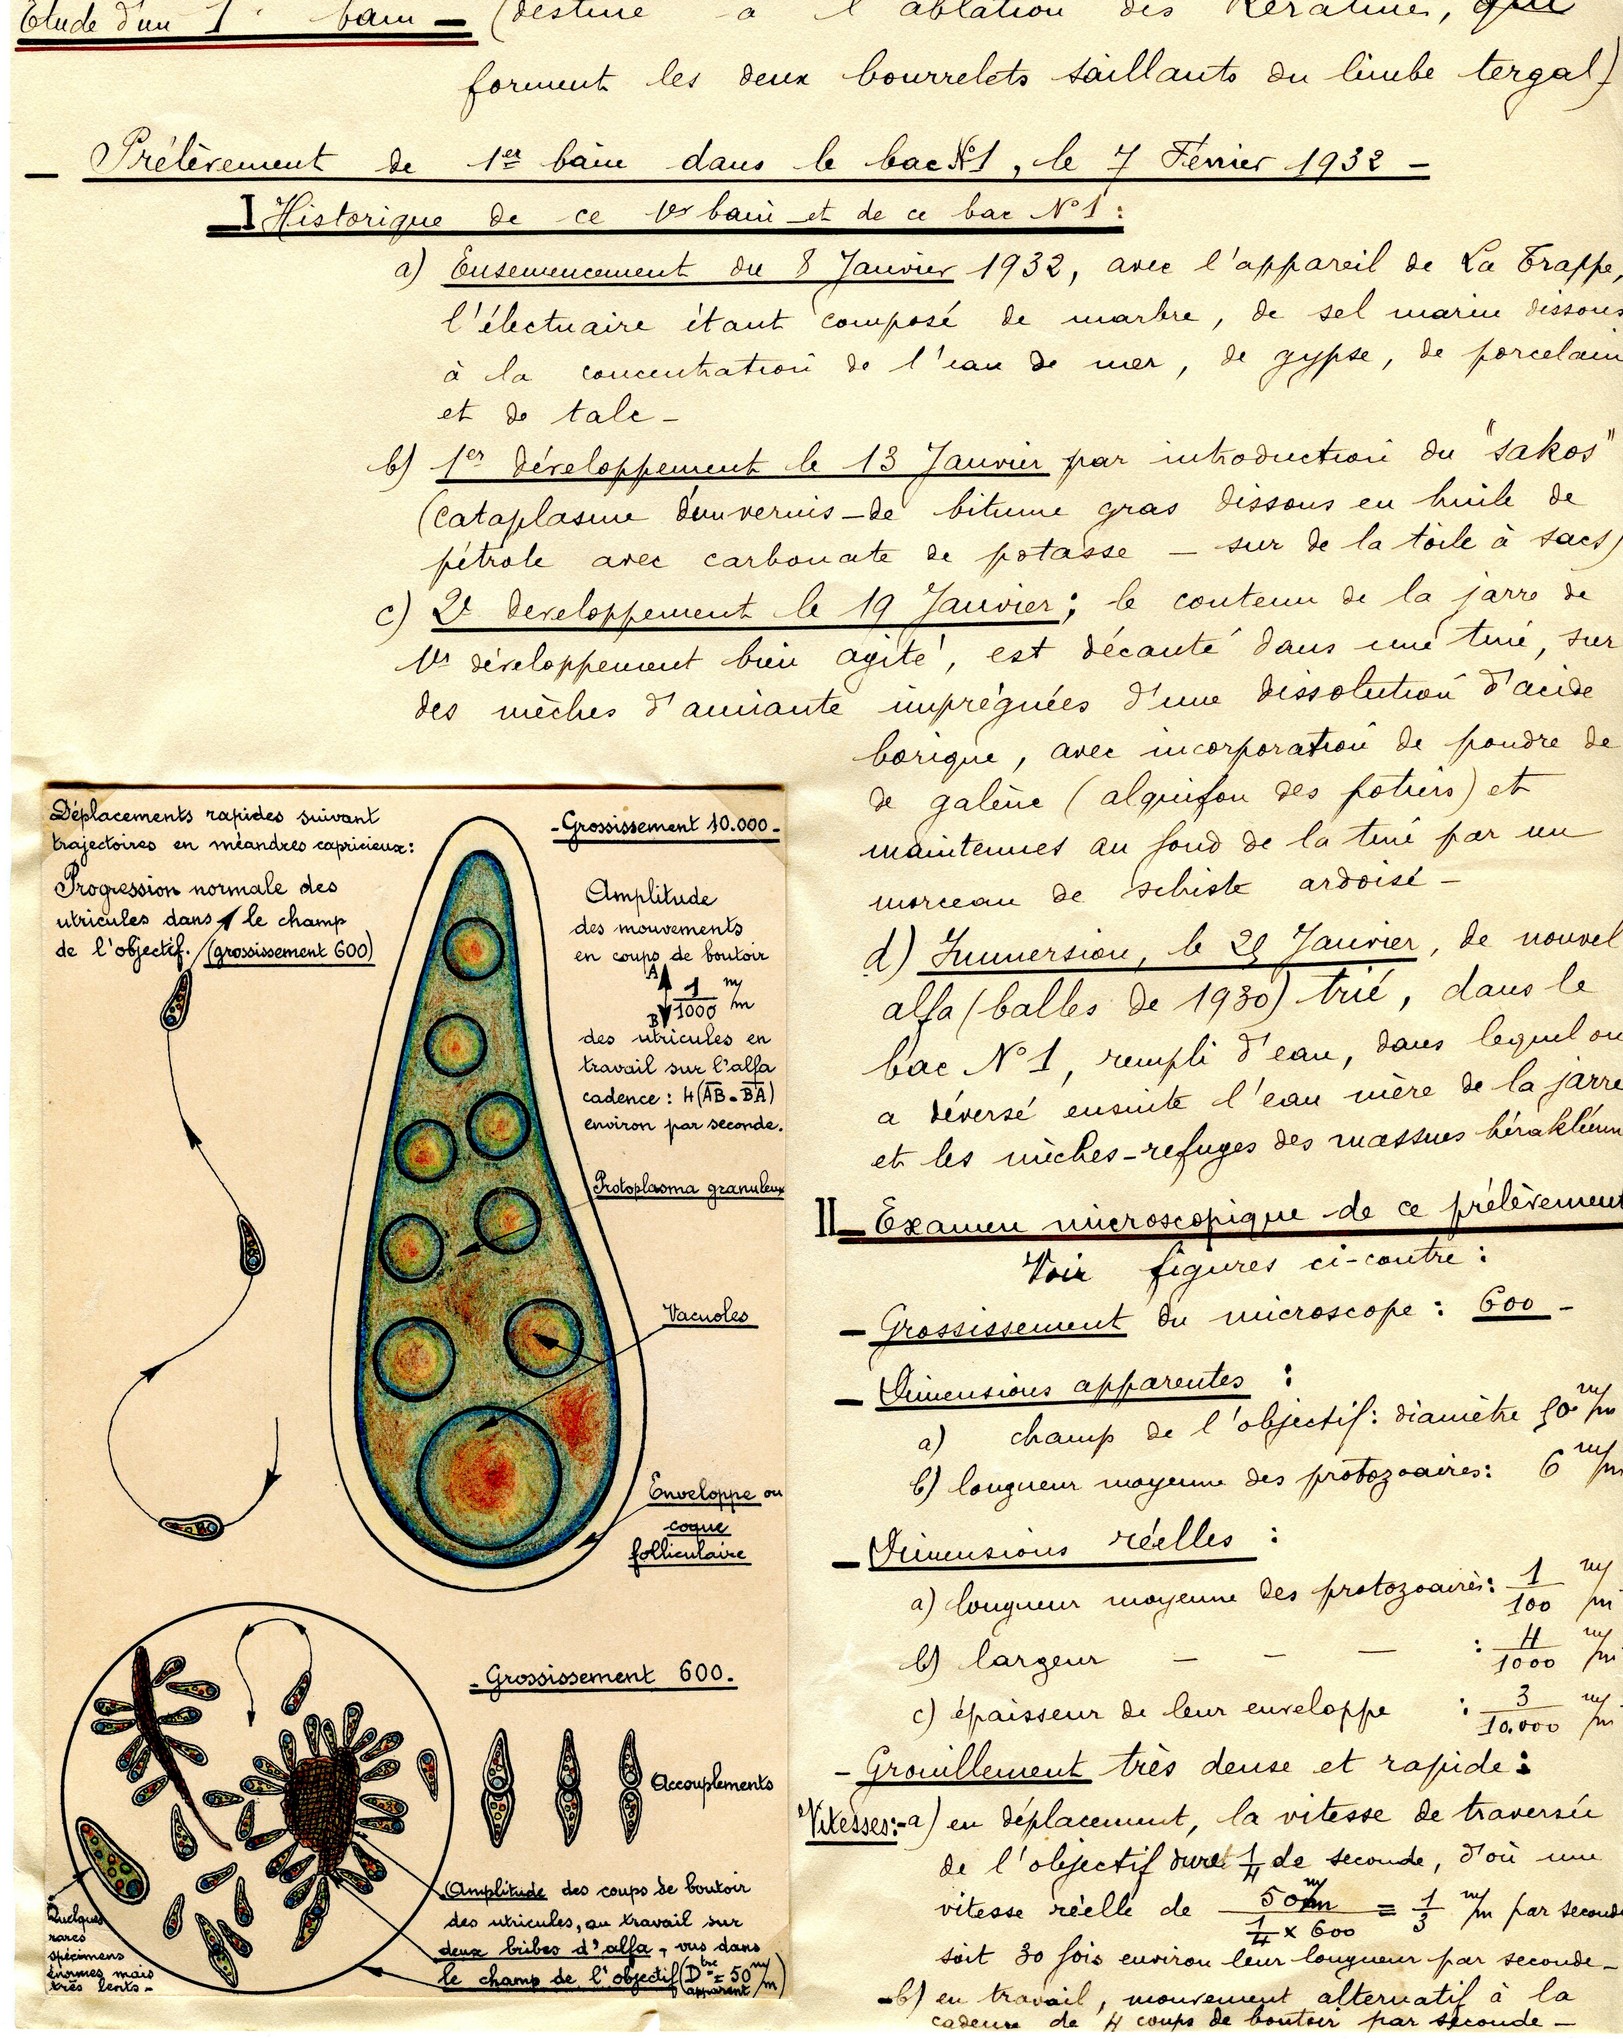 Etude d'un 1er bain — (destiné à l'ablation des Kératines, qui
forment les deux bourrelets saillants du limbe tergal)
— Prélèvement de 1er bain dans le bac N°1, le 7 Février 1932 —
I Historique de ce 1er bain et de ce bac N°1 :
a) Ensemencement du 8 Janvier 1932, avec l'appareil de La Trappe,
l'électuaire étant composé de marbre, de sel marin dissous
à la concentration de l'eau de mer, de gypse, de porcelain
et de talc —
b) 1er développement le 13 Janvier par introduction du "sakos"
(cataplasme d'un vernis — de bitume gras dissous en huile de
pétrole avec carbonate de potasse — sur de la toile à sacs)
c) 2e développement le 19 Janvier ; le contenu de la jarre de
1er développement bien agité, est décanté dans une tine, sur
des mèches d'amiante imprégnées d'une dissolution d'acide
borique, avec incorporation de poudre de
de galène (alquifou des potiers) et
maintenues au fond de la tine par un
morceau de schiste ardoisé —
d) Immersion, le Janvier, de nouvel
alfa (balles de 1930) trié, dans le
bac N°1, rempli d'eau, dans lequel on
a déversé ensuite l'eau mère de la jarre
et les mèches-refuges des massues hérakléenn
II — Examen microscopique de ce prélèvement
Voir figures ci-contre :
— Grossissement du microscope : 600 —
— Dimensions apparentes :
a) champ de l'objectif : diamètre 50 m/m
b) longueur moyenne des protozoaires : 6 m/m
— Dimensions réelles :
a) longueur moyenne des protozoaires : 1/100 m/m
b) largeur — — — : 4/1000 m/m
c) épaisseur de leur enveloppe : 3/10.000 m/m
— Grouillement très dense et rapide :
Vitesses : — a) en déplacement, la vitesse de traversée
de l'objectif dure 1/4 de seconde, d'où une
vitesse réelle de 50 m/m / 1/4 x 600 = 1/3 m/m par seconde
soit 30 fois environ leur longueur par seconde —
— b) en travail, mouvement alternatif à la
cadence de 4 coups de boutoir par seconde —
Déplacements rapides suivant
trajectoires en méandres capricieux :
Progression normale des
utricules dans le champ
de l'objectif. (grossissement 600)
- Grossissement 10.000 -
Amplitude
des mouvements
en coups de boutoir
A
1/1000 m/m
B
des utricules en
travail sur l'alfa
cadence : 4 (AB - BA)
environ par seconde.
Protoplasma granuleux
Vacuoles
Enveloppe ou
coque
folliculaire
- Grossissement 600 -
Accouplements
Amplitude des coups de boutoir
des utricules, au travail sur
deux bribes d'alfa, vus dans
le champ de l'objectif (Dtre apparent = 50 m/m)
Quelques
rares
spécimens
énormes mais
très lents -